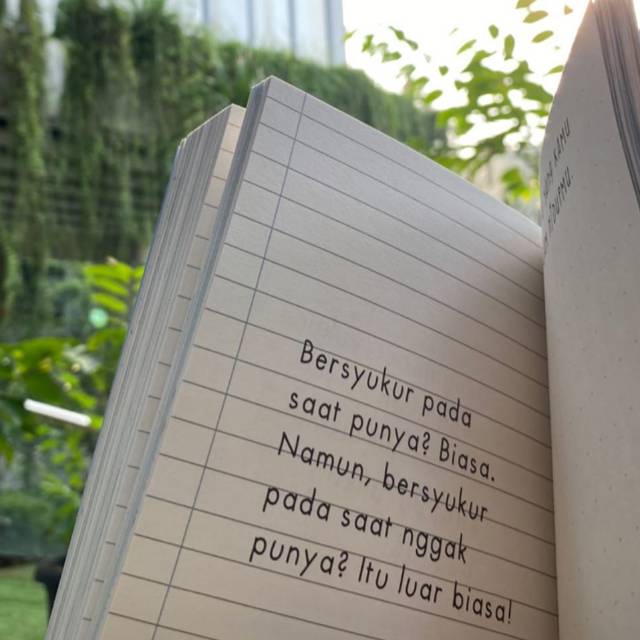 Bersyukur pada
saat punya? Biasa.
Namun, bersyukur
pada saat nggak
punya? Itu luar biasa!
KAMU